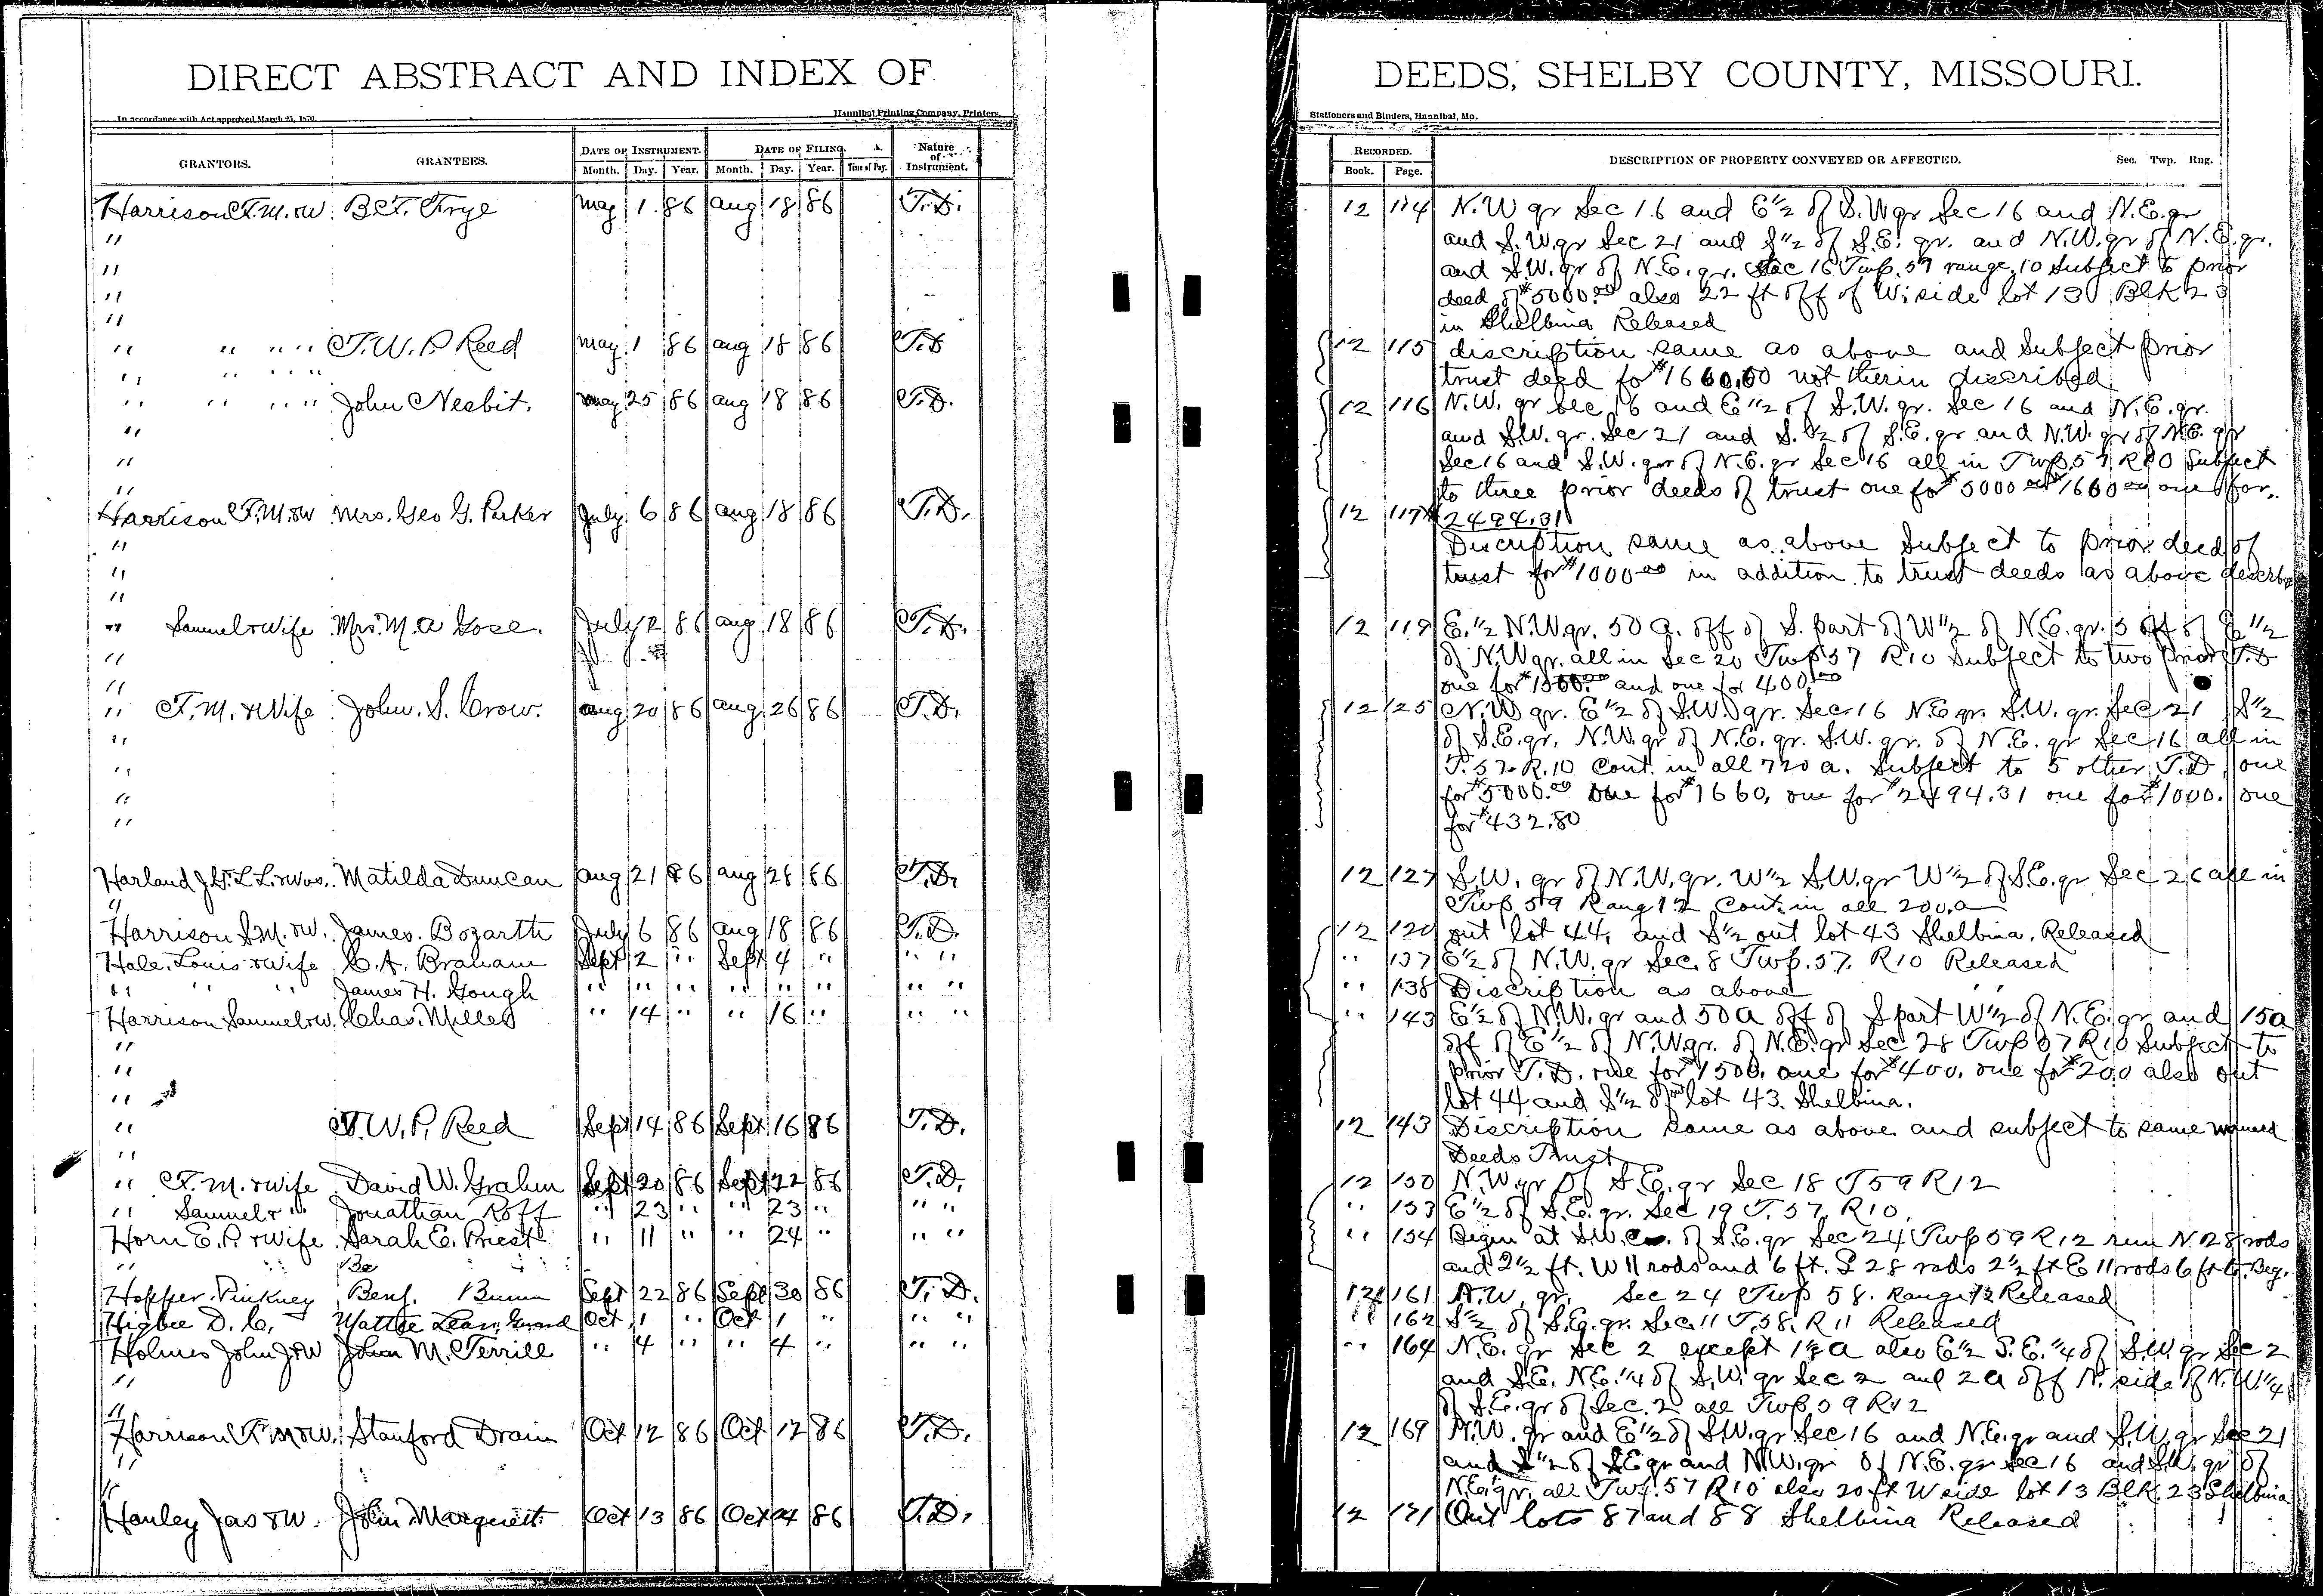 DIRECT ABSTRACT AND INDEX OF
In accordance with Act approved March 25, 1870.
Hannibal Printing Company, Printers.
GRANTORS. GRANTEES. DATE OF INSTRUMENT. DATE OF FILING. Nature of Instrument.
Month. Day. Year. Month. Day. Year. Time of Day.
Harrison T.M. &W. B.F. Frye May 1 86 Aug 18 86 T.D.
"
"
"
"
" " " " T.W.P. Reed May 1 86 Aug 18 86 T.D
" " " "
" " " " John Nesbit. May 25 86 Aug 18 86 T.D.
"
"
"
Harrison T.M. &W Mrs. Geo G. Parker July 6 86 Aug 18 86 T.D.
"
"
"
" Samuel & Wife Mrs. M.A Gose. July 12 86 Aug 18 86 T.D.
"
"
" T.M. & Wife John. S. Crow. Aug 20 86 Aug 26 86 T.D.
"
"
"
"
Harland Matilda Duncan Aug 21 86 Aug 28 86 T.D.
"
Harrison S.M. &W. James. Bozarth July 6 86 Aug 18 86 T.D.
Hale. Louis & Wife C.A. Braham Sept 2 " Sept 4 " " "
" " " James H. Gough " " " " " " " "
Harrison Samuel &W. Chas. Miller " 14 " " 16 " " "
"
"
"
" T.W.P. Reed Sept 14 86 Sept 16 86 T.D.
"
" T.M. & Wife David W. Graham Sept 20 86 Sept 22 86 T.D.
" Samuel & " Jonathan Roff " 23 " " 23 " " "
Horn E.P. & Wife Sarah E. Priest " 11 " " 24 " " "
" Be
Hopper. Pinkney Benj. Bunn Sept 22 86 Sept 30 86 T.D.
Higbee D.C. Mattie Oct 1 " Oct 1 " " "
Holmes John J &W John M. Terrill " 4 " " 4 " " "
"
"
Harrison T M &W. Stanford Drain Oct 12 86 Oct 12 86 T.D.
"
"
Hanley Jas &W. John Marquett Oct 13 86 Oct 24 86 T.D.
DEEDS, SHELBY COUNTY, MISSOURI.
Stationers and Binders, Hannibal, Mo.
RECORDED. DESCRIPTION OF PROPERTY CONVEYED OR AFFECTED. Sec. Twp. Rng.
Book. Page.
12 114 N.W qr Sec 16 and E 1/2 of S.W qr Sec 16 and N.E. qr
and S.W. qr Sec 21 and S 1/2 of S.E. qr. and N.W. qr of N.E. qr.
and S.W. qr of N.E. qr. Sec 16 Twp. 57 range. 10 Subject to prior
deed of $5000.00 also 22 ft off of W. side lot 13 Blk 23
in Shelbina Released
12 115 discription same as above and Subject prior
trust deed fo $1660.00 not therin discribed
12 116 N.W. qr Sec 16 and E 1/2 of S.W. qr. Sec 16 and N.E. qr.
and S.W. qr. Sec 21 and S. 1/2 of S.E. qr and N.W. qr of N.E. qr
Sec 16 and S.W. qr of N.E. qr Sec 16 all in Twp. 57 R10 Subject
to three prior deeds of trust one for $5000.00 $1660.00 one for
12 117 $2494.31
Discription same as above Subject to prior deed of
trust for $1000.00 in addition to trust deeds as above describe
12 119 E. 1/2 N.W. qr. 50 a. off of S. part of W 1/2 of N.E. qr. 5 off of E 1/2
of N.W qr. all in Sec 20 Twp 57 R10 Subject to two prior T.D
one for $1500.00 and one for 400.00
12 125 N.W qr. E 1/2 of S.W. qr. Sec. 16 N.E qr. S.W. qr. Sec 21 S 1/2
of S.E. qr. N.W. qr of N.E. qr. S.W. qr. of N.E. qr Sec 16 all in
T. 57 R. 10 Cont. in all 720 a. Subject to 5 other T.D. one
for $5000.00 one for $1660, one for $2494.31 one for $1000. one
for $432.80
12 127 S.W. qr of N.W. qr. W 1/2 S.W. qr W 1/2 of S.E. qr Sec 26 all in
Twp 59 Rang 12 Cont. in all 200. a
12 120 out lot 44, and S 1/2 out lot 43 Shelbina. Released
" 137 E 1/2 of N.W. qr Sec. 8 Twp. 57. R10 Released
" 138 Discription as above
" 143 E 1/2 of N.W. qr and 50 a off of S part W 1/2 of N.E. qr and 15a
off of E 1/2 of N.W qr. of N.E. qr Sec 28 Twp 57 R10 Subject to
prior T.D. one for $1500. one for $400. one for $200 also out
lot 44 and S 1/2 of out lot 43. Shelbina.
12 143 Discription same as above and subject to same
Deeds Trust
12 150 N.W. qr of S.E. qr Sec 18 T59 R12
" 153 E 1/2 of S.E. qr. Sec 19 T. 57. R10.
" 154 Begin at S.W. Co. of S.E. qr Sec 24 Twp 59 R12 run N 28 rods
and 2 1/2 ft. W 11 rods and 6 ft. S 28 rods 2 1/2 ft E 11 rods 6 ft to Beg.
12 161 N.W. qr. Sec 24 Twp 58. Range 12 Released
" 162 S 1/2 of S.E. qr. Sec. 11 T. 58. R 11 Released
" 164 N.E. qr Sec 2 except a also E 1/2 S.E. 1/4 of S.W. qr Sec 2
and S.E. N.E. 1/4 of S.W. qr Sec 2 and 2 a off N. side of N.W. 1/4
of S.E. qr of Sec. 2 all Twp. 59 R12
12 169 N.W. qr and E 1/2 of S.W. qr Sec 16 and N.E. qr and S.W. qr Sec 21
and S 1/2 of S E qr and N.W. qr of N.E. qr Sec 16 and S.W. qr of
N.E. qr. all Twp. 57 R10 also 20 ft W side lot 13 Blk. 23 Shelbina
12 171 Out lots 87 and 88 Shelbina Released